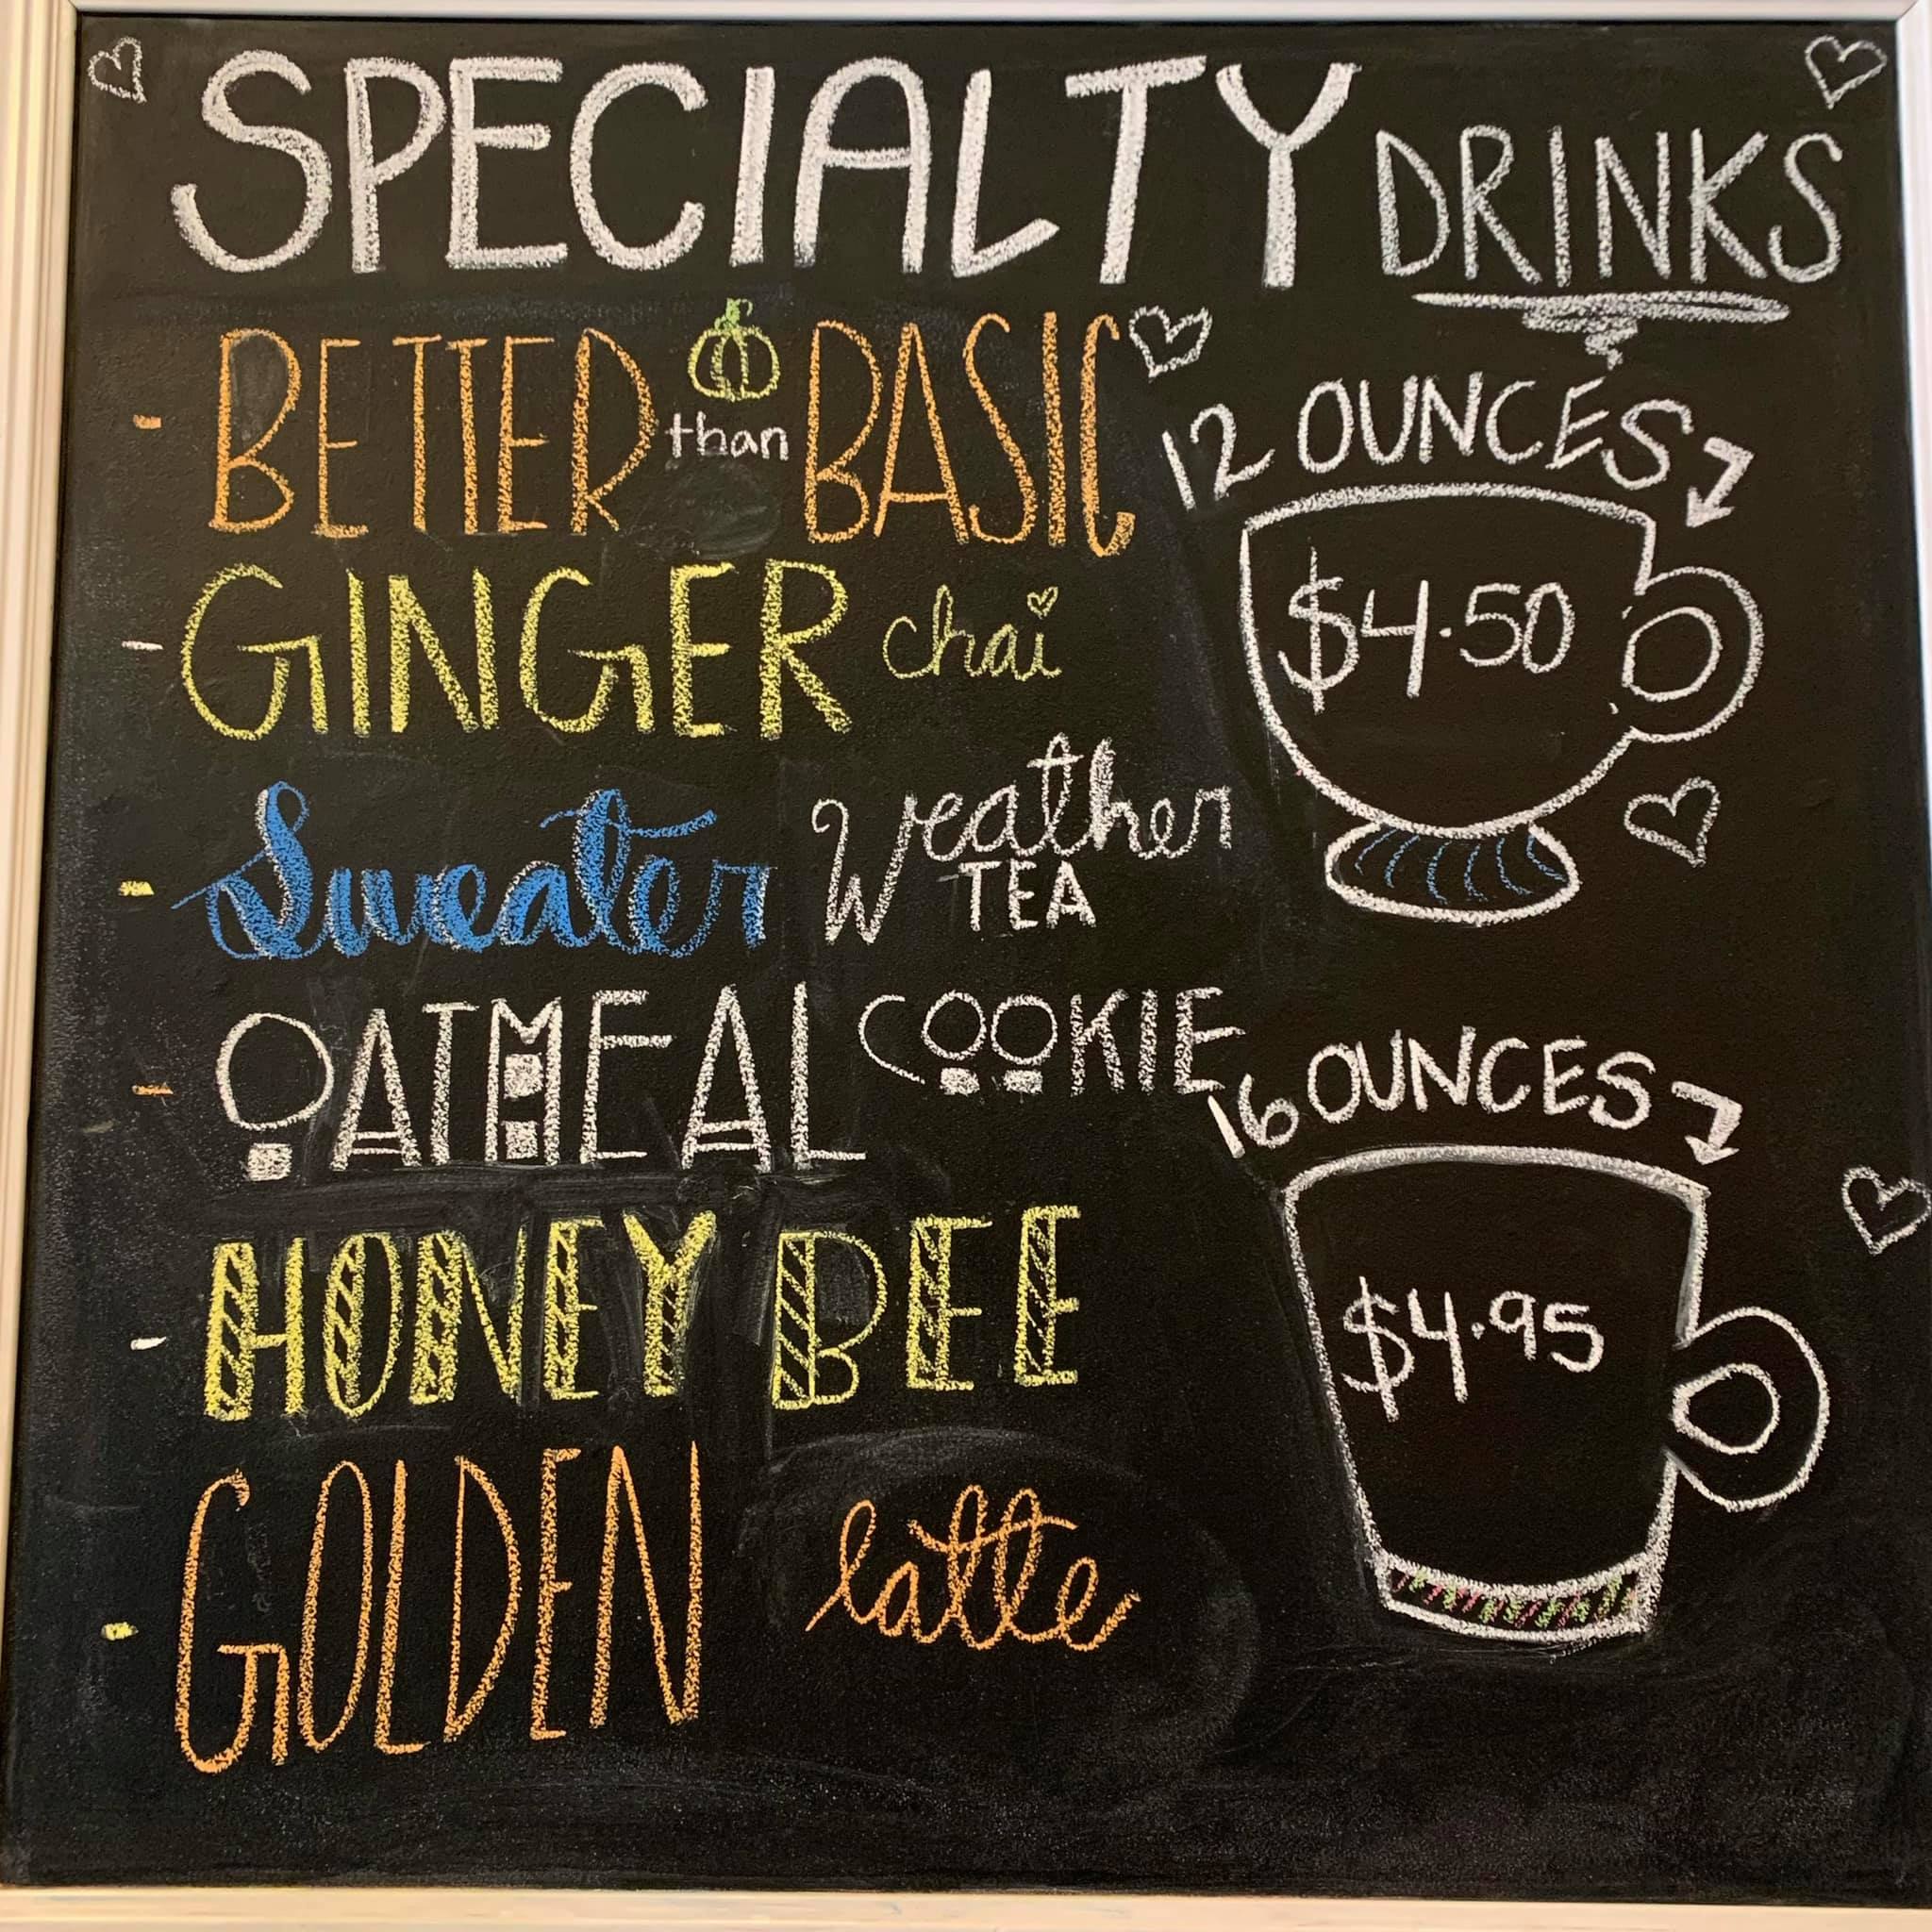 SPECIALTY DRINKS
- BETTER than BASIC
- GINGER chai
- Sweater Weather TEA
- OATMEAL COOKIE
- HONEY BEE
- GOLDEN latte
12 OUNCES
$4.50
16 OUNCES
$4.95